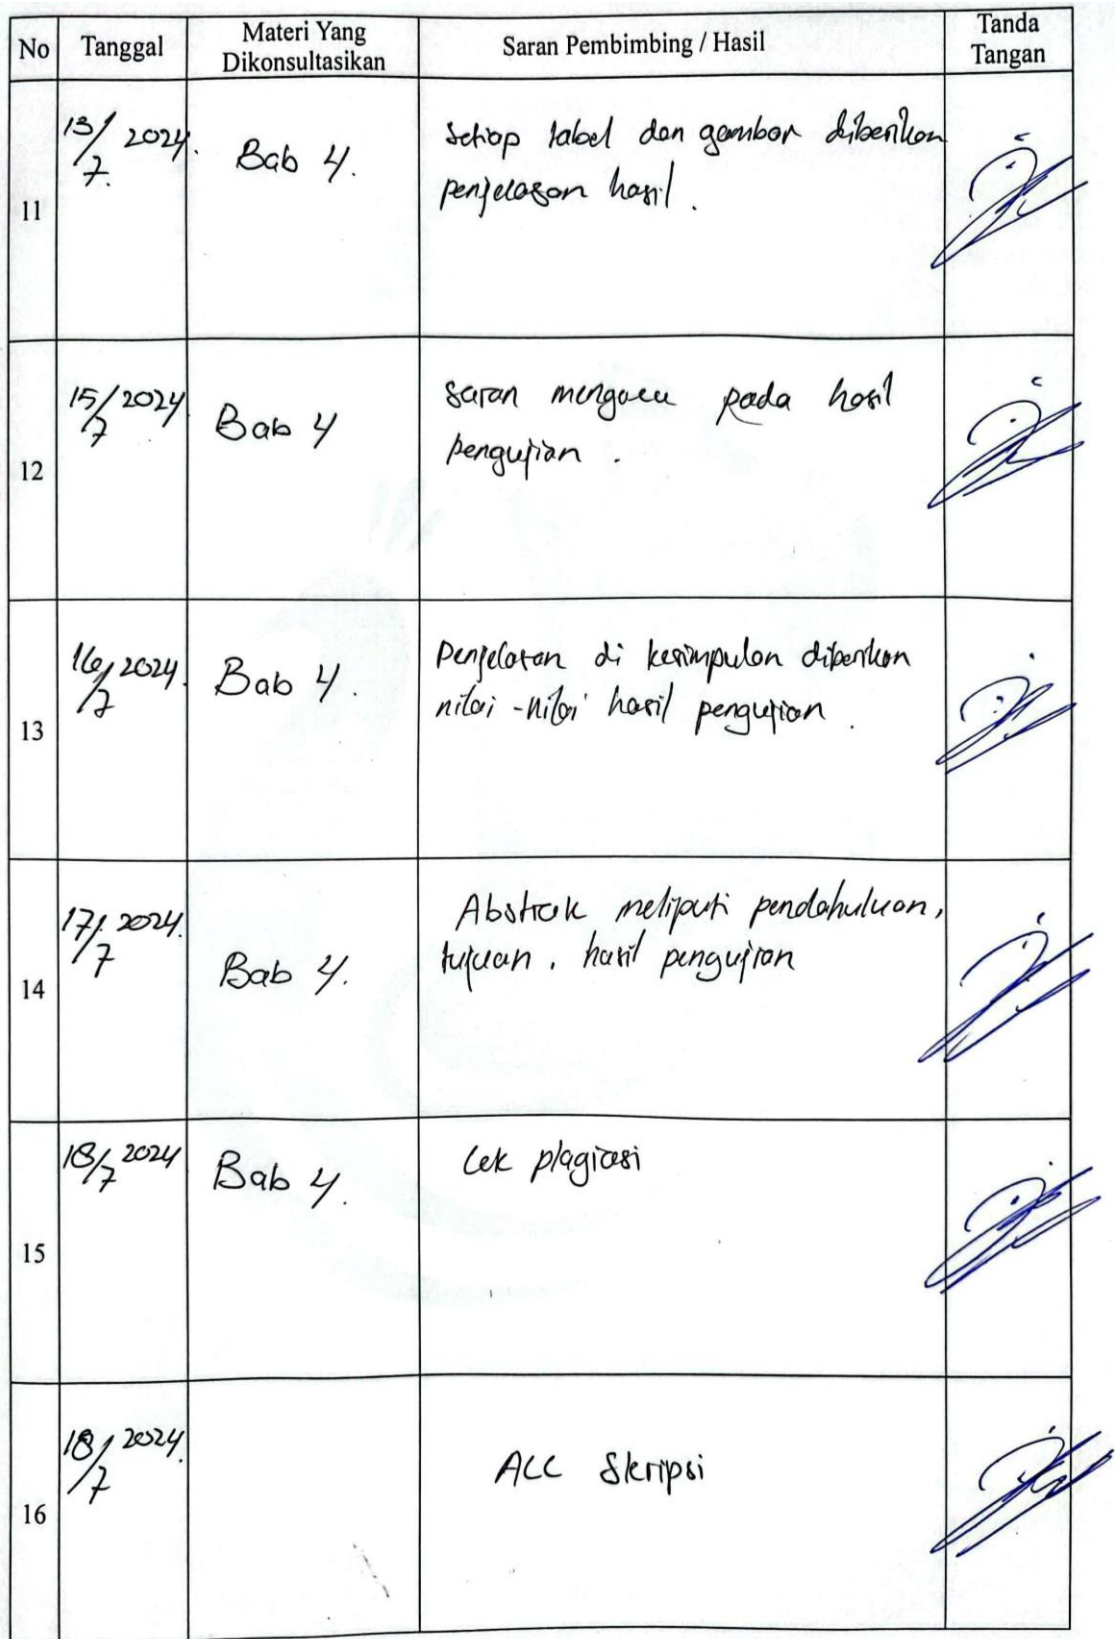 No Tanggal Materi Yang Dikonsultasikan Saran Pembimbing / Hasil Tanda Tangan
11 13/7 2024. Bab 4. Setiap tabel dan gambar diberikan
penjelasan hasil.
12 15/7 2024 Bab 4 Saran mengacu pada hasil
pengujian.
13 16/7 2024. Bab 4. Penjelasan di kesimpulan diberikan
nilai-nilai hasil pengujian.
14 17/7 2024. Bab 4. Abstrak meliputi pendahuluan,
tujuan, hasil pengujian
15 18/7 2024 Bab 4. Cek plagiasi
16 18/7 2024. ACC Skripsi